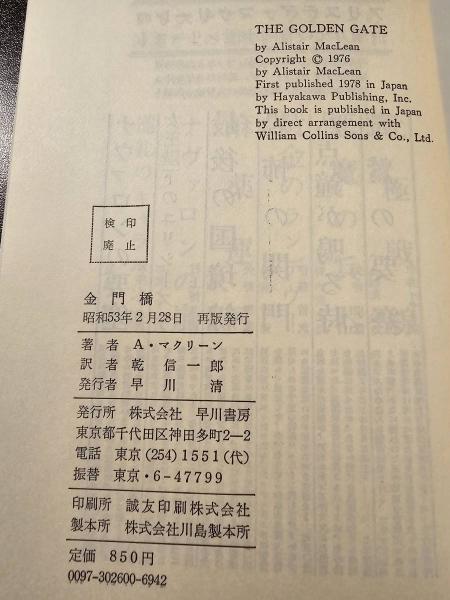 THE GOLDEN GATE
by Alistair MacLean
Copyright © 1976
by Alistair MacLean
First published 1978 in Japan
by Hayakawa Publishing, Inc.
This book is published in Japan
by direct arrangement with
William Collins Sons & Co., Ltd.
検印
廃止
金門橋
昭和53年2月28日 再版発行
著者 A・マクリーン
訳者 乾信一郎
発行者 早川清
発行所 株式会社 早川書房
東京都千代田区神田多町2―2
電話 東京(254)1551(代)
振替 東京・6-47799
印刷所 誠友印刷株式会社
製本所 株式会社川島製本所
定価 850円
0097-302600-6942